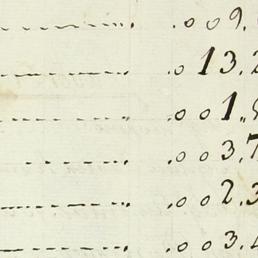 .009.
.013.2
.001.
.003.7
.002.3
.003.